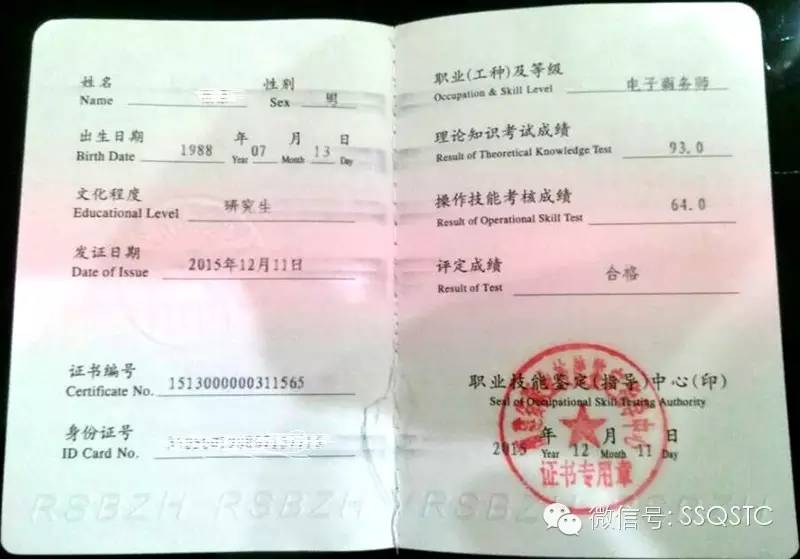 姓名 性别
Name Sex 男
出生日期 年 月 日
Birth Date 1988 Year 07 Month 13 Day
文化程度 研究生
Educational Level
发证日期 2015年12月11日
Date of Issue
证书编号
Certificate No. 1513000000311565
身份证号
ID Card No.
RSBZH RSBZH
职业(工种)及等级 电子商务师
Occupation & Skill Level
理论知识考试成绩
Result of Theoretical Knowledge Test 93.0
操作技能考核成绩 64.0
Result of Operational Skill Test
评定成绩 合格
Result of Test
职业技能鉴定(指导)中心(印)
Seal of Occupational Skill Testing Authority
2015 年 月 日
Year 12 Month 11 Day
证书专用章
RSBZH RSBZH
微信号: SSQSTC